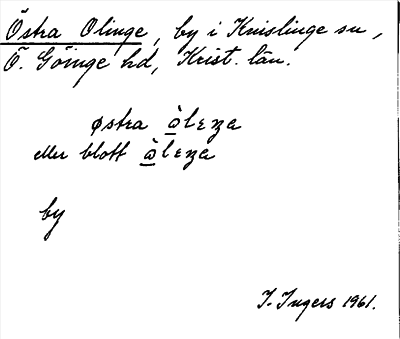 Östra Olinge, by i Knislinge sn,
Ö. Göinge hd, Krist. län.
østra òlɛŋa
eller blott òlɛŋa
by
I. Ingers 1961.